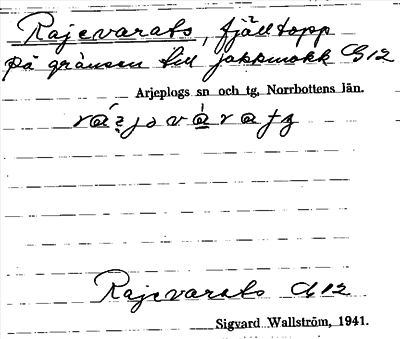 Rajevarats, fjälltopp
på gränsen till jokkmokk G12
Arjeplogs sn och tg, Norrbottens län.
Rajevarats G12
Sigvard Wallström, 1941.